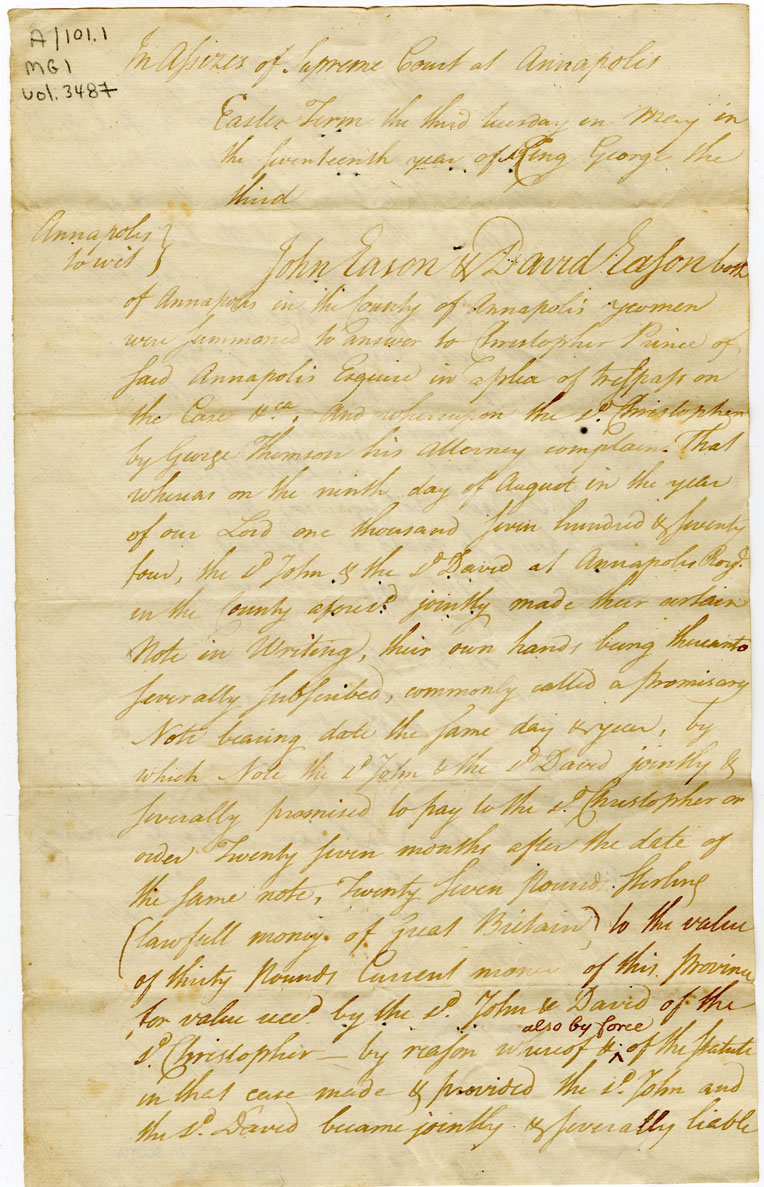 A/101.1
MG1
vol. 3487
In Assizes of Supreme Court at Annapolis
Easter Term the third tuesday in May in
the seventeenth year of King George the
third
Annapolis
to wit }
John Eason & David Eason both
of Annapolis in the County of Annapolis yeomen
were summoned to answer to Christopher Prince of
said Annapolis Esquire in a plea of trespass on
the Case &ca. And whereupon the sd. Christopher
by George Thomson his attorney complain. That
whereas on the ninth day of August in the year
of our Lord one thousand seven hundred & seventy
four, the sd John & the sd David at Annapolis Royl.
in the County aforesd. jointly made their certain
Note in Writing, their own hands being thereunto
severally subscribed, commonly called a promisary
Note bearing date the same day & year, by
which Note the sd John & the sd David jointly &
severally promised to pay to the sd. Christopher or
order Twenty seven months after the date of
the same note, Twenty seven Pound Sterling
(lawfull money of Great Britain) to the value
of thirty Pounds Current money of this province
for value recd by the sd. John & David of the
also by force
sd. Christopher — by reason whereof &. ^ of the statute
in that case made & provided the sd. John and
the sd. David became jointly & severally liable